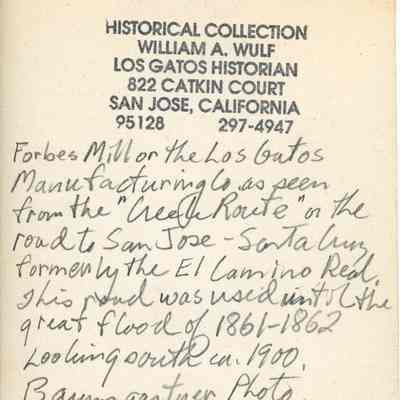 HISTORICAL COLLECTION
WILLIAM A. WULF
LOS GATOS HISTORIAN
822 CATKIN COURT
SAN JOSE, CALIFORNIA
95128 297-4947
Forbes Mill or the Los Gatos
Manufacturing Co as seen
from the "Creek Route" on the
road to San Jose - Santa Cruz
formerly the El Camino Real.
This road was used until the
great flood of 1861-1862
Looking south ca. 1900.
Baumgartner Photo.